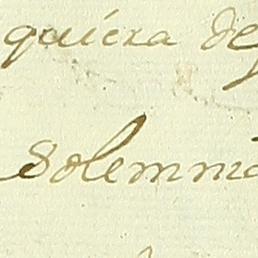 quiera de
Solemni